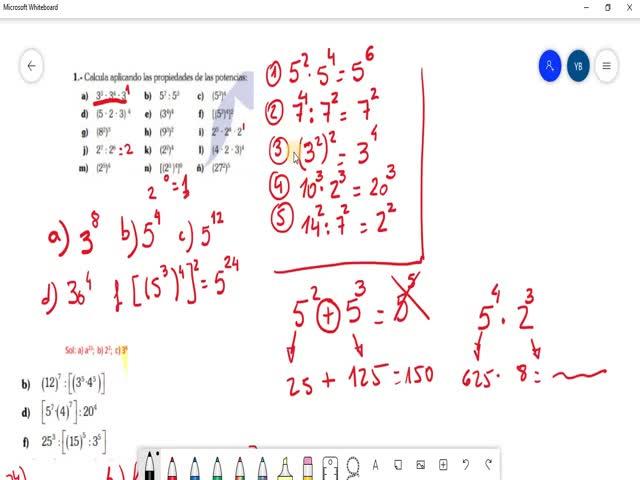 Microsoft Whiteboard
YB
1.- Calcula aplicando las propiedades de las potencias:
b) 5⁷ : 5³ c) (5³)⁴
d) (5 · 2 · 3)⁴ e) (3⁴)⁴
g) (8²)³ h) (9³)²
: 2 k) (2⁵)⁴ l) (4 · 2 · 3)⁴
m) (2⁵)⁴ ñ) (27²)⁵
2⁰ = 1
a) 3⁸ b) 5⁴ c) 5¹²
d) 30⁴ f [(5³)⁴]² = 5²⁴
① 5² · 5⁴ = 5⁶
② 7⁴ : 7² = 7²
③ (3²)² = 3⁴
④ 10³ · 2³ = 20³
⑤ 14² : 7² = 2²
5² + 5³ = 5⁵
25 + 125 = 150
5⁴ · 2³
625 · 8 =
b) (12)⁷ : [(3⁵·4⁵)]
d) [5⁷·(4)⁷] : 20⁴
f) 25³ : [(15)⁵ : 3⁵]